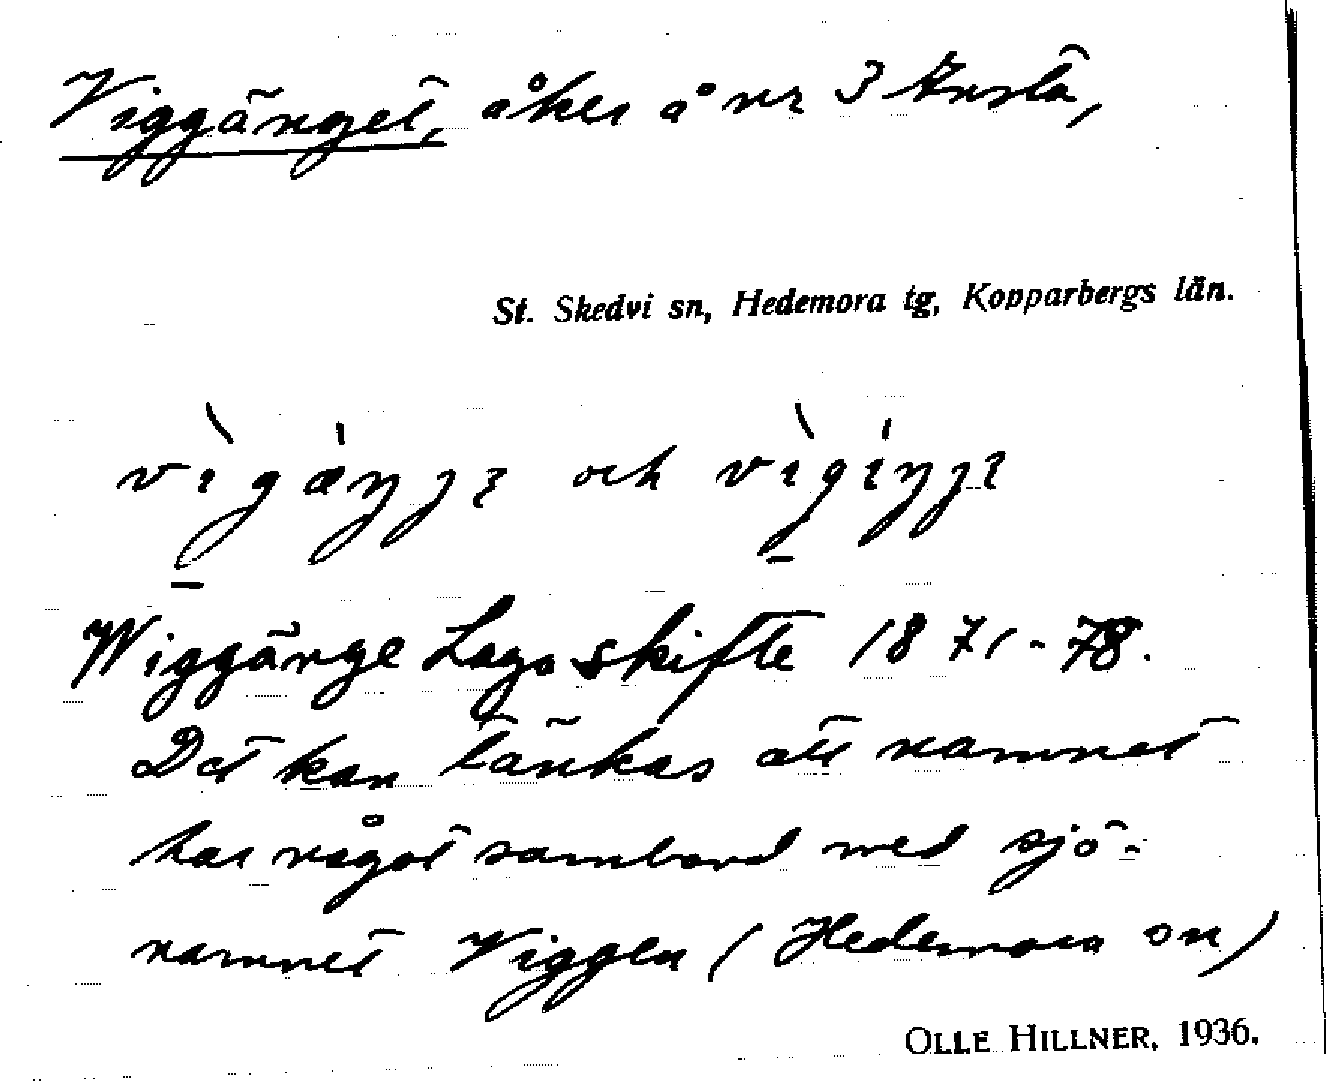 Viggänget, åker å nr 3
St. Skedvi sn, Hedemora tg, Kopparbergs län.
och
Wiggänge Laga skifte 1871-78.
Det kan tänkas att namnet
har något samband med sjö-
namnet Viggen (Hedemora sn)
OLLE HILLNER, 1936.